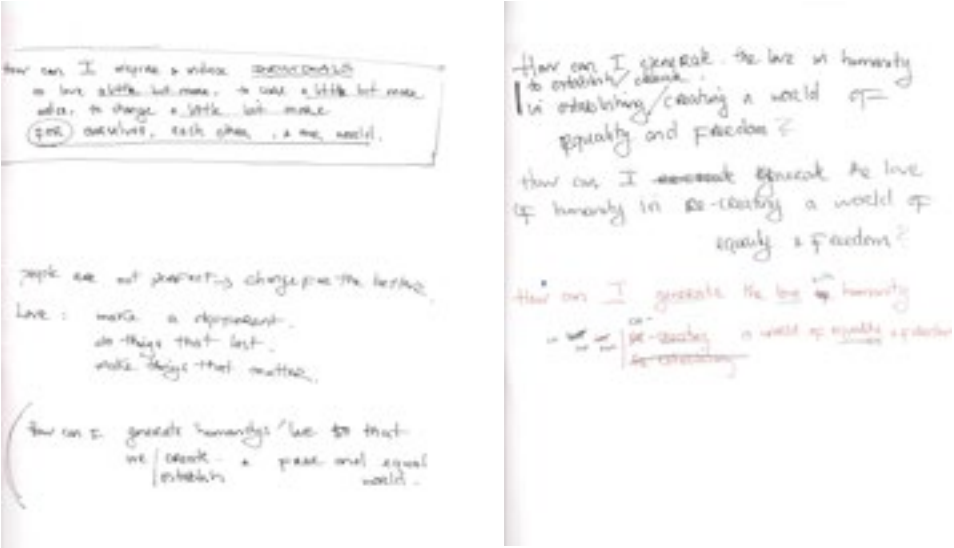 How can I inspire & induce INDIVIDUALS
to love a little bit more, to care a little bit more
to change a little bit more
FOR ourselves, each other, & the world.
people are not perfect changing for the better.
Love: make a
do things that last.
make things that matter.
How can I generate humanitys love so that
we create a free and equal
establish world.
How can I generate the love in humanity
to establish/create
in establishing/creating a world of
equality and freedom?
How can I generate the love
of humanity in re-creating a world of
equality & freedom?
How can I generate the love humanity
re-creating a world of equality & freedom